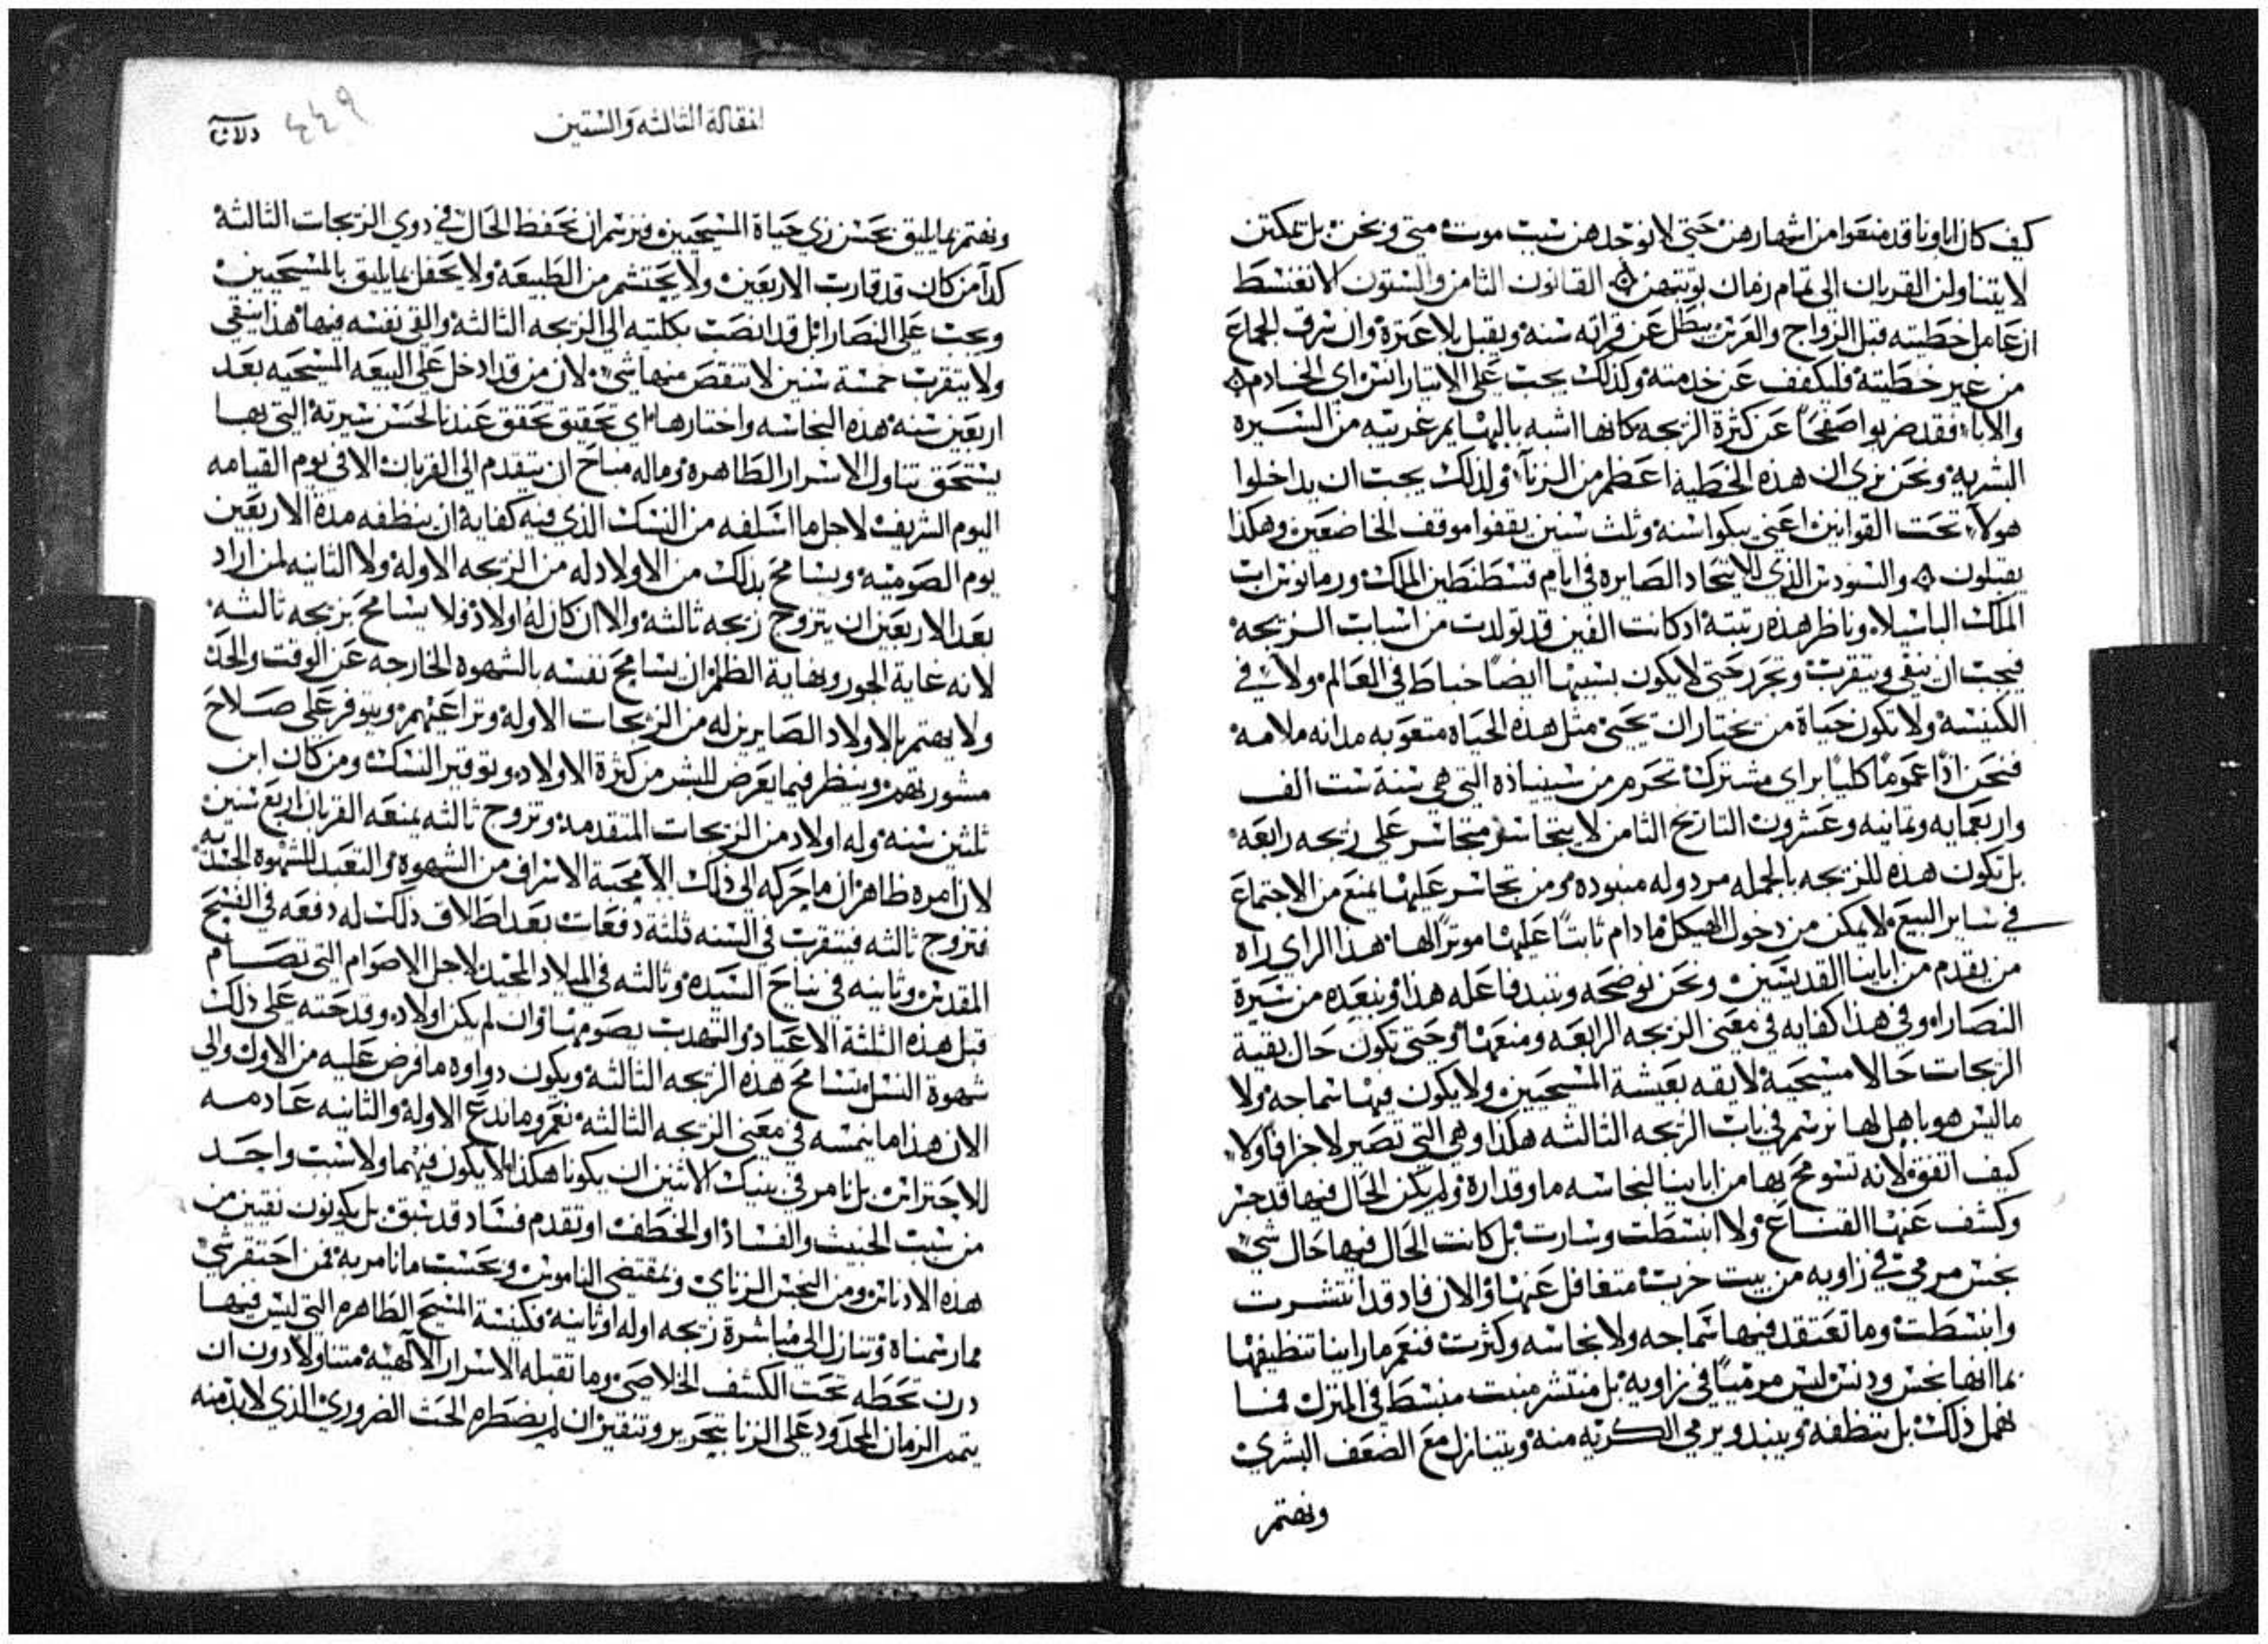 كيف كان اباونا قد منعوا من اشهارهن حتى لا نوجدهن سبب موت متى ونحن بل تمكثن
لا يتناولن القربان الى تمام زمان توبتهن القانون الثامن والستون لا نغنسط
ان عامل خطيته قبل الزواج والعرس يبطل عن قراته سنه ويقبل بلا عثرة وان سرق الجماع
من غير خطيته فليكفف عن خدمته وكذلك يجب على الابتاراتس اي الخادم
والابا فقد ضربوا صفحا عن كثرة الزيجه كانها اشبه بالبهايم غريبه من السيره
البشريه ونحن نرى ان هذه الخطية اعظم من الزنآ ولذلك يجب ان يداخلوا
هولآ تحت القوانين اعني يبكوا سنه وثلث سنين يقفوا موقف الخاضعين وهكذا
يقبلون والسنودس الذي للاتحاد الصايره في ايام قسطنطين الملك ورمانوس اب
الملك الباسيلا وناظر هذه رتبته اذ كانت الفين قد تولدت من اسباب الزيجه
فيجب ان ينقى ويتقرب وتحرر حتى لا يكون بسببها ايضا خباط في العالم ولا في
الكنيسه ولا يكون حياة من يختار ان يحيى مثل هذه الحياه متعوبه مدانه ملامه
فنحن اذا عموما كليا براي مشترك نحرم من سينياذه التي هي سنة ست الف
واربعمايه وثمانيه وعشرون التاريخ الثامن لا يتجاسر متجاسر على زيجه رابعه
بل تكون هذه الزيجه بالجمله مردوله منبوده ومن تجاسر عليها يمنع من الاجتماع
في ساير البيع لا يمكن من دخول الهيكل ما دام ثابتا عليها موثرا لها هذا الراي راه
من تقدم من اباينا القديسين ونحن نوضحه وننبد فاعله هذا ونبعده من سيرة
النصارا وفي هذا كفايه في معنى الزيجه الرابعه ومنعها وحتى تكون حال بقية
الزيجات حالا مسيحيه لايقه بعيشة المسيحيين ولا يكون فيها سماجه ولا
ماليس هو باهل لها نرسم في باب الزيجه الثالثه هكذا وهي التي تصير لا جزافا ولا
كيف اتفق لانه تسومح بها من اباينا لنجاسه ما وقدارة ولم يكن الحال فيها قد جسر
وكشف عنها القناع ولا انبسطت وسارت بل كانت الحال فيها حال شي
نجس مرمي في زاويه من بيت خرب متغافل عنها والان فاد قد انتشرت
وانبسطت وما تعتقد فيها سماجه ولا نجاسه وكثرت فنعم ما راينا تنظيفها
بما انها نجس ودنس ليس مرميا في زاويه بل منتشر منبت منبسط في المنزل فما
نهمل ذلك بل ننظفه وينبد ويرمي الكريه منه ويتنازل مع الضعف البشري
ونهتم
المقالة الثالثه والستين
٤٤٩
ونهتم بما يليق بحسن زي حياة المسيحيين ونرسم ان تحفظ الحال في دوي الزيجات الثالثة
كدآ من كان قد قارب الاربعين ولا يحتشم من الطبيعة ولا يحفل بما يليق بالمسيحيين
ويجب على النصارا بل قد انصب بكلته الى الزيجه الثالثه والقى نفسه فيها هذا ينقى
ولا يتقرب خمسة سنين لا تنقص منها شي لان من قد ادخل على البيعه المسيحيه بعد
اربعين سنه هذه النجاسه واختارها اي تحقيق تحقق عندنا لحسن سيرته التي بها
يستحق تناول الاسرار الطاهره وماله مباح ان يتقدم الى القربان الا في يوم القيامه
اليوم الشريف لاجل ما اسلفه من النسك الذي فيه كفاية ان ينظفه مدة الاربعين
يوم الصوميه ويسامح بذلك من لا اولاد له من الزيجه الاوله ولا الثانيه لمن اراد
بعد الاربعين ان يتزوج زيجه ثالثه والا ان كان له اولاد فلا يسامح بزيجه ثالثه
لانه غاية الجور ونهاية الظلم ان يسامح نفسه بالشهوه الخارجه عن الوقت والحد
ولا يهتم بالاولاد الصايرين له من الزيجات الاوله وتراعيهم ويتوفر على صلاح
مشورتهم وينظر فيما يعرض للبشر من كثرة الاولاد وتوقير النسك ومن كان ابن
ثلثين سنه وله اولاد من الزيجات المتقدمه وتزوج ثالثه يمنعه القربان اربع سنين
لان امره ظاهر ان ما حركه الى ذلك الا محبة الاسراف من الشهوه والتعبد للشهوة الجسديه
فتزوج ثالثه فيتقرب في السنه ثلثة دفعات بعد اطلاق ذلك له دفعه في الفسح
المقدس وثانيه في نياح السيده وثالثه في الميلاد المجيد لاجل الاصوام التي تصام
قبل هذه الثلثة الاعياد والتهدب بصومها وان لم يكن اولاد وقد حته على ذلك
شهوة النسل يسامح هذه الزيجه الثالثه ويكون دواوه ما فرض عليه من الاول والى
الان هذا ما يمسه في معنى الزيجه الثالثه نعم وما ندع الاوله والثانيه عادمه
للاحتراس بل نامر في بينك الاثنين ان يكونا هكذا لا يكون فيهما ولا سبب واحد
من سبب الخبيث والفساد او الخطف او تقدم فساد قد سبق بل يكونون نقيين من
هذه الادناس ومن النجس الزناي وبمقتضى الناموس وبحسب ما نامر به فمن احتقر شي
مما رسمناه وتنازل الى مباشرة زيجه اوله او ثانيه فكنيسة المسيح الطاهره التي ليس فيها
درن تحطه تحت الكشف الخلاصي وما تقبله الاسرار الآلهيه متناولا دون ان
يتمم الزمان المحدود على الزنا بتحرير وتنقير ان لم يضطره الحث الضروري الذي لابد منه